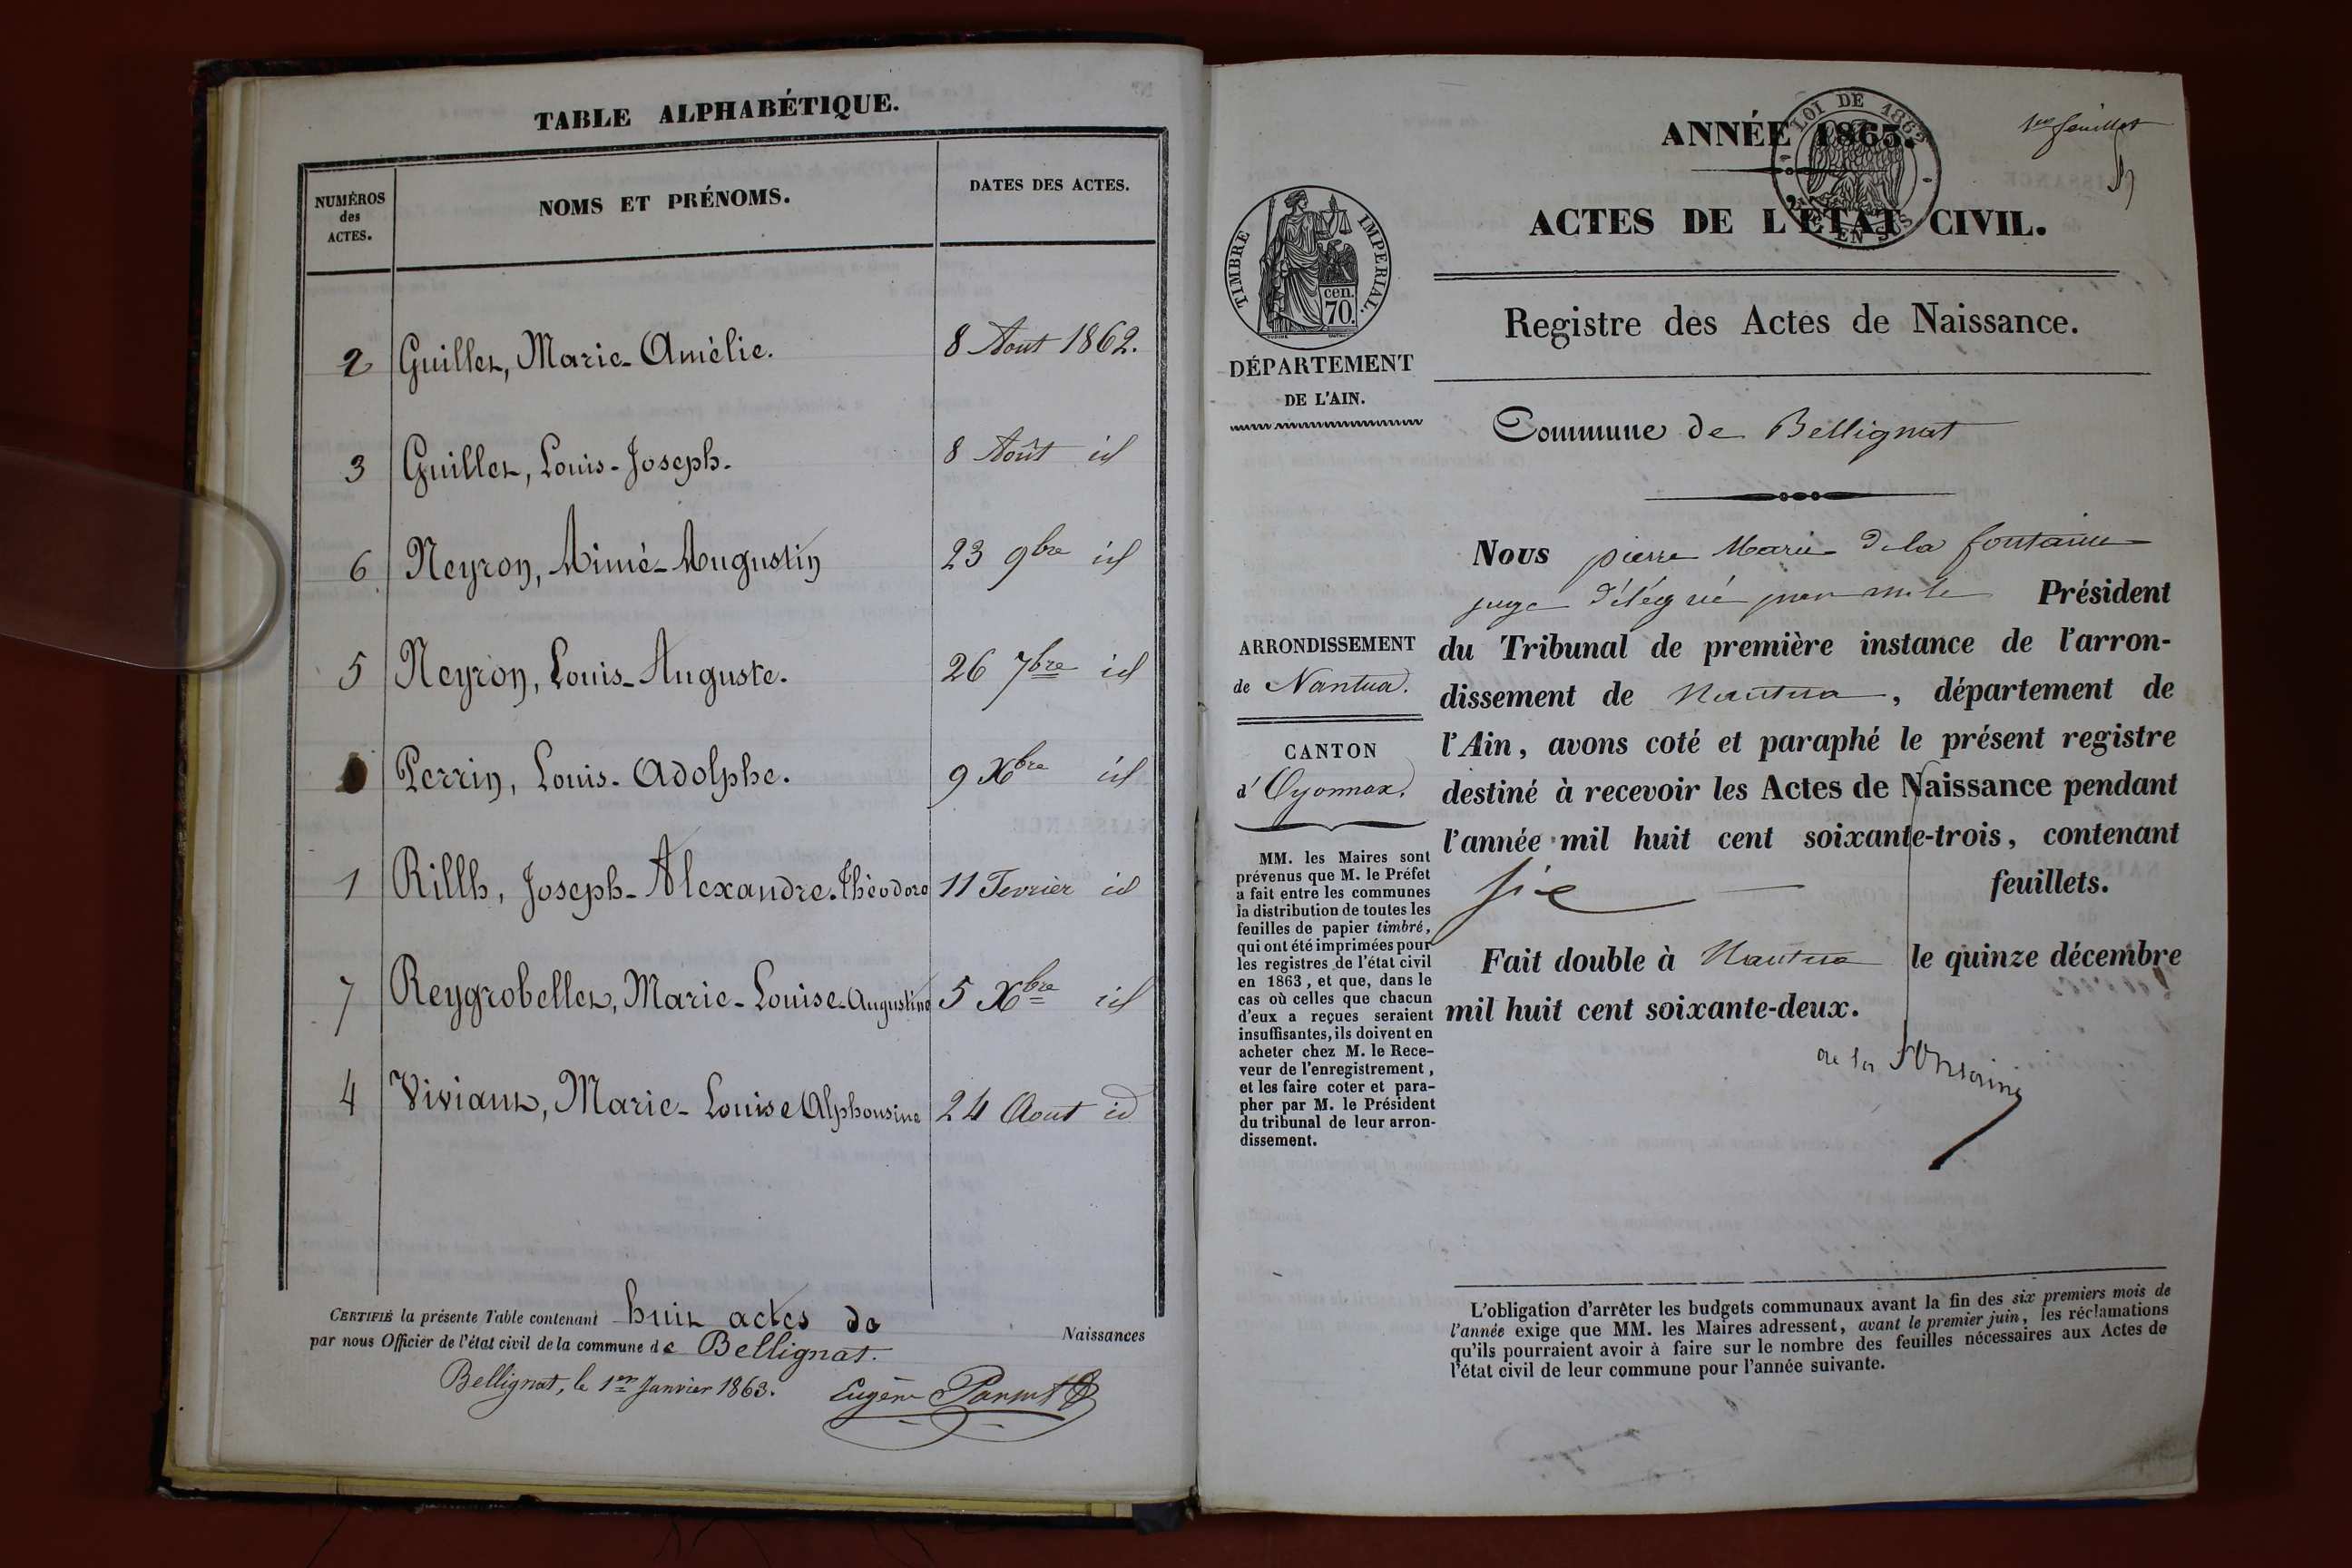 TABLE ALPHABÉTIQUE.
NUMÉROS des ACTES.
NOMS ET PRÉNOMS.
DATES DES ACTES.
2 Guillet, Marie-Amélie. 8 Aout 1862.
3 Guillet, Louis-Joseph. 8 Août id
6 Neyron, Aimé-Augustin 23 9bre id
5 Neyron, Louis-Auguste. 26 7bre id
Perrin, Louis-Adolphe. 9 Xbre id
1 Rillh, Joseph-Alexandre-Théodore 11 Fevrier id
7 Reygrobellet, Marie-Louise-Augustine 5 Xbre id
4 Viviant, Marie-Louise Alphonsine 24 Aout id
CERTIFIÉ la présente Table contenant huit actes de Naissances
par nous Officier de l'état civil de la commune de Bellignat.
Bellignat, le 1er Janvier 1863. Eugène
1er feuillet
LOI DE 1862
2/10 EN SUS
ANNÉE 1863.
ACTES DE L'ÉTAT CIVIL.
Registre des Actes de Naissance.
TIMBRE IMPERIAL.
cen. 70.
DÉPARTEMENT
DE L'AIN.
Commune de Bellignat
Nous pierre Marie de la fontaine
juge délégué par mr le Président
du Tribunal de première instance de l'arron-
dissement de Nantua, département de
l'Ain, avons coté et paraphé le présent registre
destiné à recevoir les Actes de Naissance pendant
l'année mil huit cent soixante-trois, contenant
six feuillets.
Fait double à Nantua le quinze décembre
mil huit cent soixante-deux.
de la fontaine
ARRONDISSEMENT
de Nantua.
CANTON
d'Oyonnax.
MM. les Maires sont
prévenus que M. le Préfet
a fait entre les communes
la distribution de toutes les
feuilles de papier timbré,
qui ont été imprimées pour
les registres de l'état civil
en 1863, et que, dans le
cas où celles que chacun
d'eux a reçues seraient
insuffisantes, ils doivent en
acheter chez M. le Rece-
veur de l'enregistrement,
et les faire coter et para-
pher par M. le Président
du tribunal de leur arron-
dissement.
L'obligation d'arrêter les budgets communaux avant la fin des six premiers mois de
l'année exige que MM. les Maires adressent, avant le premier juin, les réclamations
qu'ils pourraient avoir à faire sur le nombre des feuilles nécessaires aux Actes de
l'état civil de leur commune pour l'année suivante.